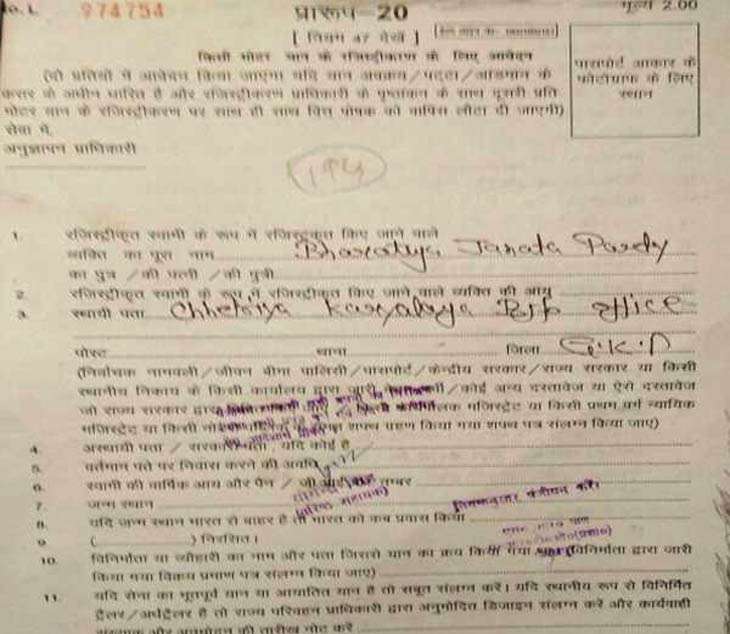 974754 प्रारूप-20 मूल्य 2.00
[ नियम 47 देखें ]
किसी मोटर यान के रजिस्ट्रीकरण के लिए आवेदन
(दो प्रतियों में आवेदन किया जाएगा यदि यान अवक्रय/पट्टा/आडमान के
करार के अधीन धारित है और रजिस्ट्रीकरण प्राधिकारी के पृष्ठांकन के साथ दूसरी प्रति
मोटर यान के रजिस्ट्रीकरण पर साथ ही साथ वित्त पोषक को वापिस लौटा दी जाएगी)
पासपोर्ट आकार के
फोटोग्राफ के लिए
स्थान
सेवा में,
अनुज्ञापन प्राधिकारी
1. रजिस्ट्रीकृत स्वामी के रूप में रजिस्ट्रकृत किए जाने वाले
व्यक्ति का पूरा नाम Bharatiya Janata Party
का पुत्र /की पत्नी /की पुत्री
2. रजिस्ट्रीकृत स्वामी के रूप में रजिस्ट्रीकृत किए जाने वाले व्यक्ति की आयु
3. स्थायी पता Chhetriya Karyalaya BJP office
पोस्ट थाना जिला G.K.P
(निर्वाचक नामवली/जीवन बीमा पालिसी/पासपोर्ट/केन्द्रीय सरकार/राज्य सरकार या किसी
स्थानीय निकाय के किसी कार्यालय द्वारा जारी /कोई अन्य दस्तावेज या ऐसे दस्तावेज
जो राज्य सरकार द्वारा मजिस्ट्रेट या किसी प्रथम वर्ग न्यायिक
मजिस्ट्रेट या किसी शपथ ग्रहण किया गया शपथ पत्र संलग्न किया जाए)
4. अस्थायी पता / सरकारी पता, यदि कोई है
5. वर्तमान पते पर निवास करने की अवधि
6. स्वामी की वार्षिक आय और पैन / जी आई आर नम्बर
7. जन्म स्थान
8. यदि जन्म स्थान भारत से बाहर है तो भारत को कब प्रवास किया
9. ( ) निरसित।
10. विनिर्माता या व्यौहारी का नाम और पता जिससे यान का क्रय किया गया (विनिर्माता द्वारा जारी
किया गया विक्रय प्रमाण पत्र संलग्न किया जाए)
11. यदि सेना का भूतपूर्व यान या आयातित यान है तो सबूत संलग्न करें। यदि स्थानीय रूप से विनिर्मित
ट्रैलर/अर्धट्रैलर है तो राज्य परिवहन प्राधिकारी द्वारा अनुमोदित डिजाइन संलग्न करें और कार्यवाही
और अनुमोदन की तारीख नोट करें